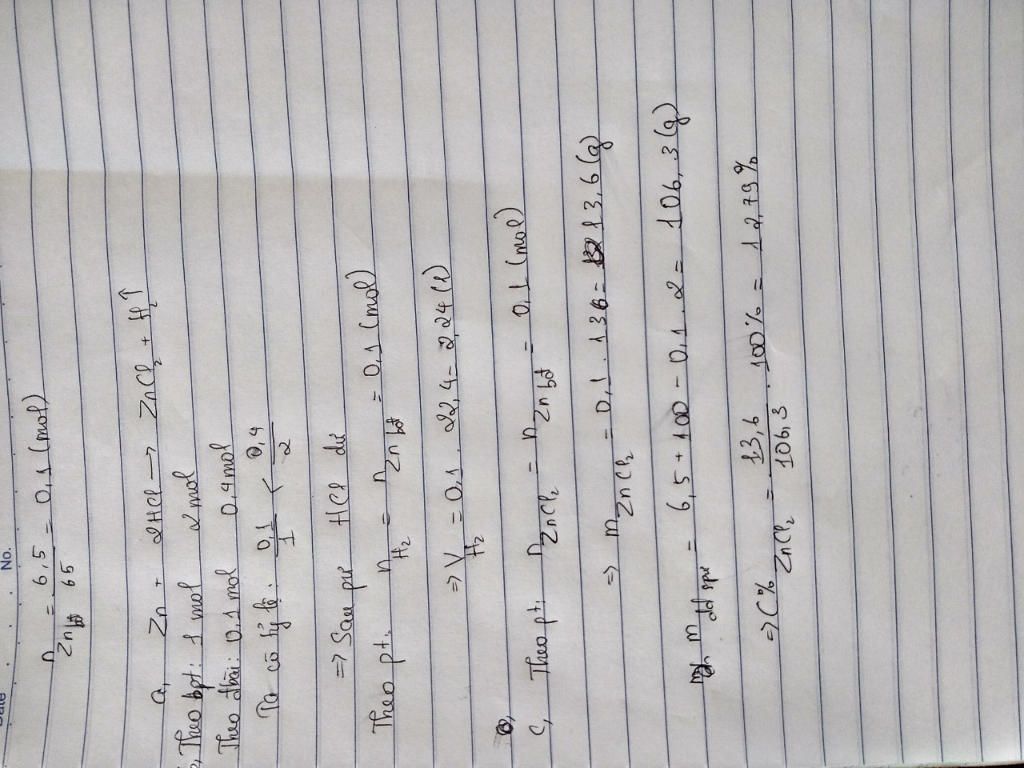 Date No.
n Zn bđ = 6,5 / 65 = 0,1 (mol)
a, Zn + 2HCl → ZnCl₂ + H₂↑
Theo pt: 1 mol 2 mol
Theo đbài: 0,1 mol 0,4 mol
Ta có tỷ lệ: 0,1/1 < 0,4/2
=> Sau pư HCl dư
Theo pt: n H₂ = n Zn bđ = 0,1 (mol)
=> V H₂ = 0,1 . 22,4 = 2,24 (l)
c, Theo pt: n ZnCl₂ = n Zn bđ = 0,1 (mol)
=> m ZnCl₂ = 0,1 . 136 = 13,6 (g)
m dd spư = 6,5 + 100 - 0,1 . 2 = 106,3 (g)
=> C% ZnCl₂ = 13,6 / 106,3 . 100% = 12,79%